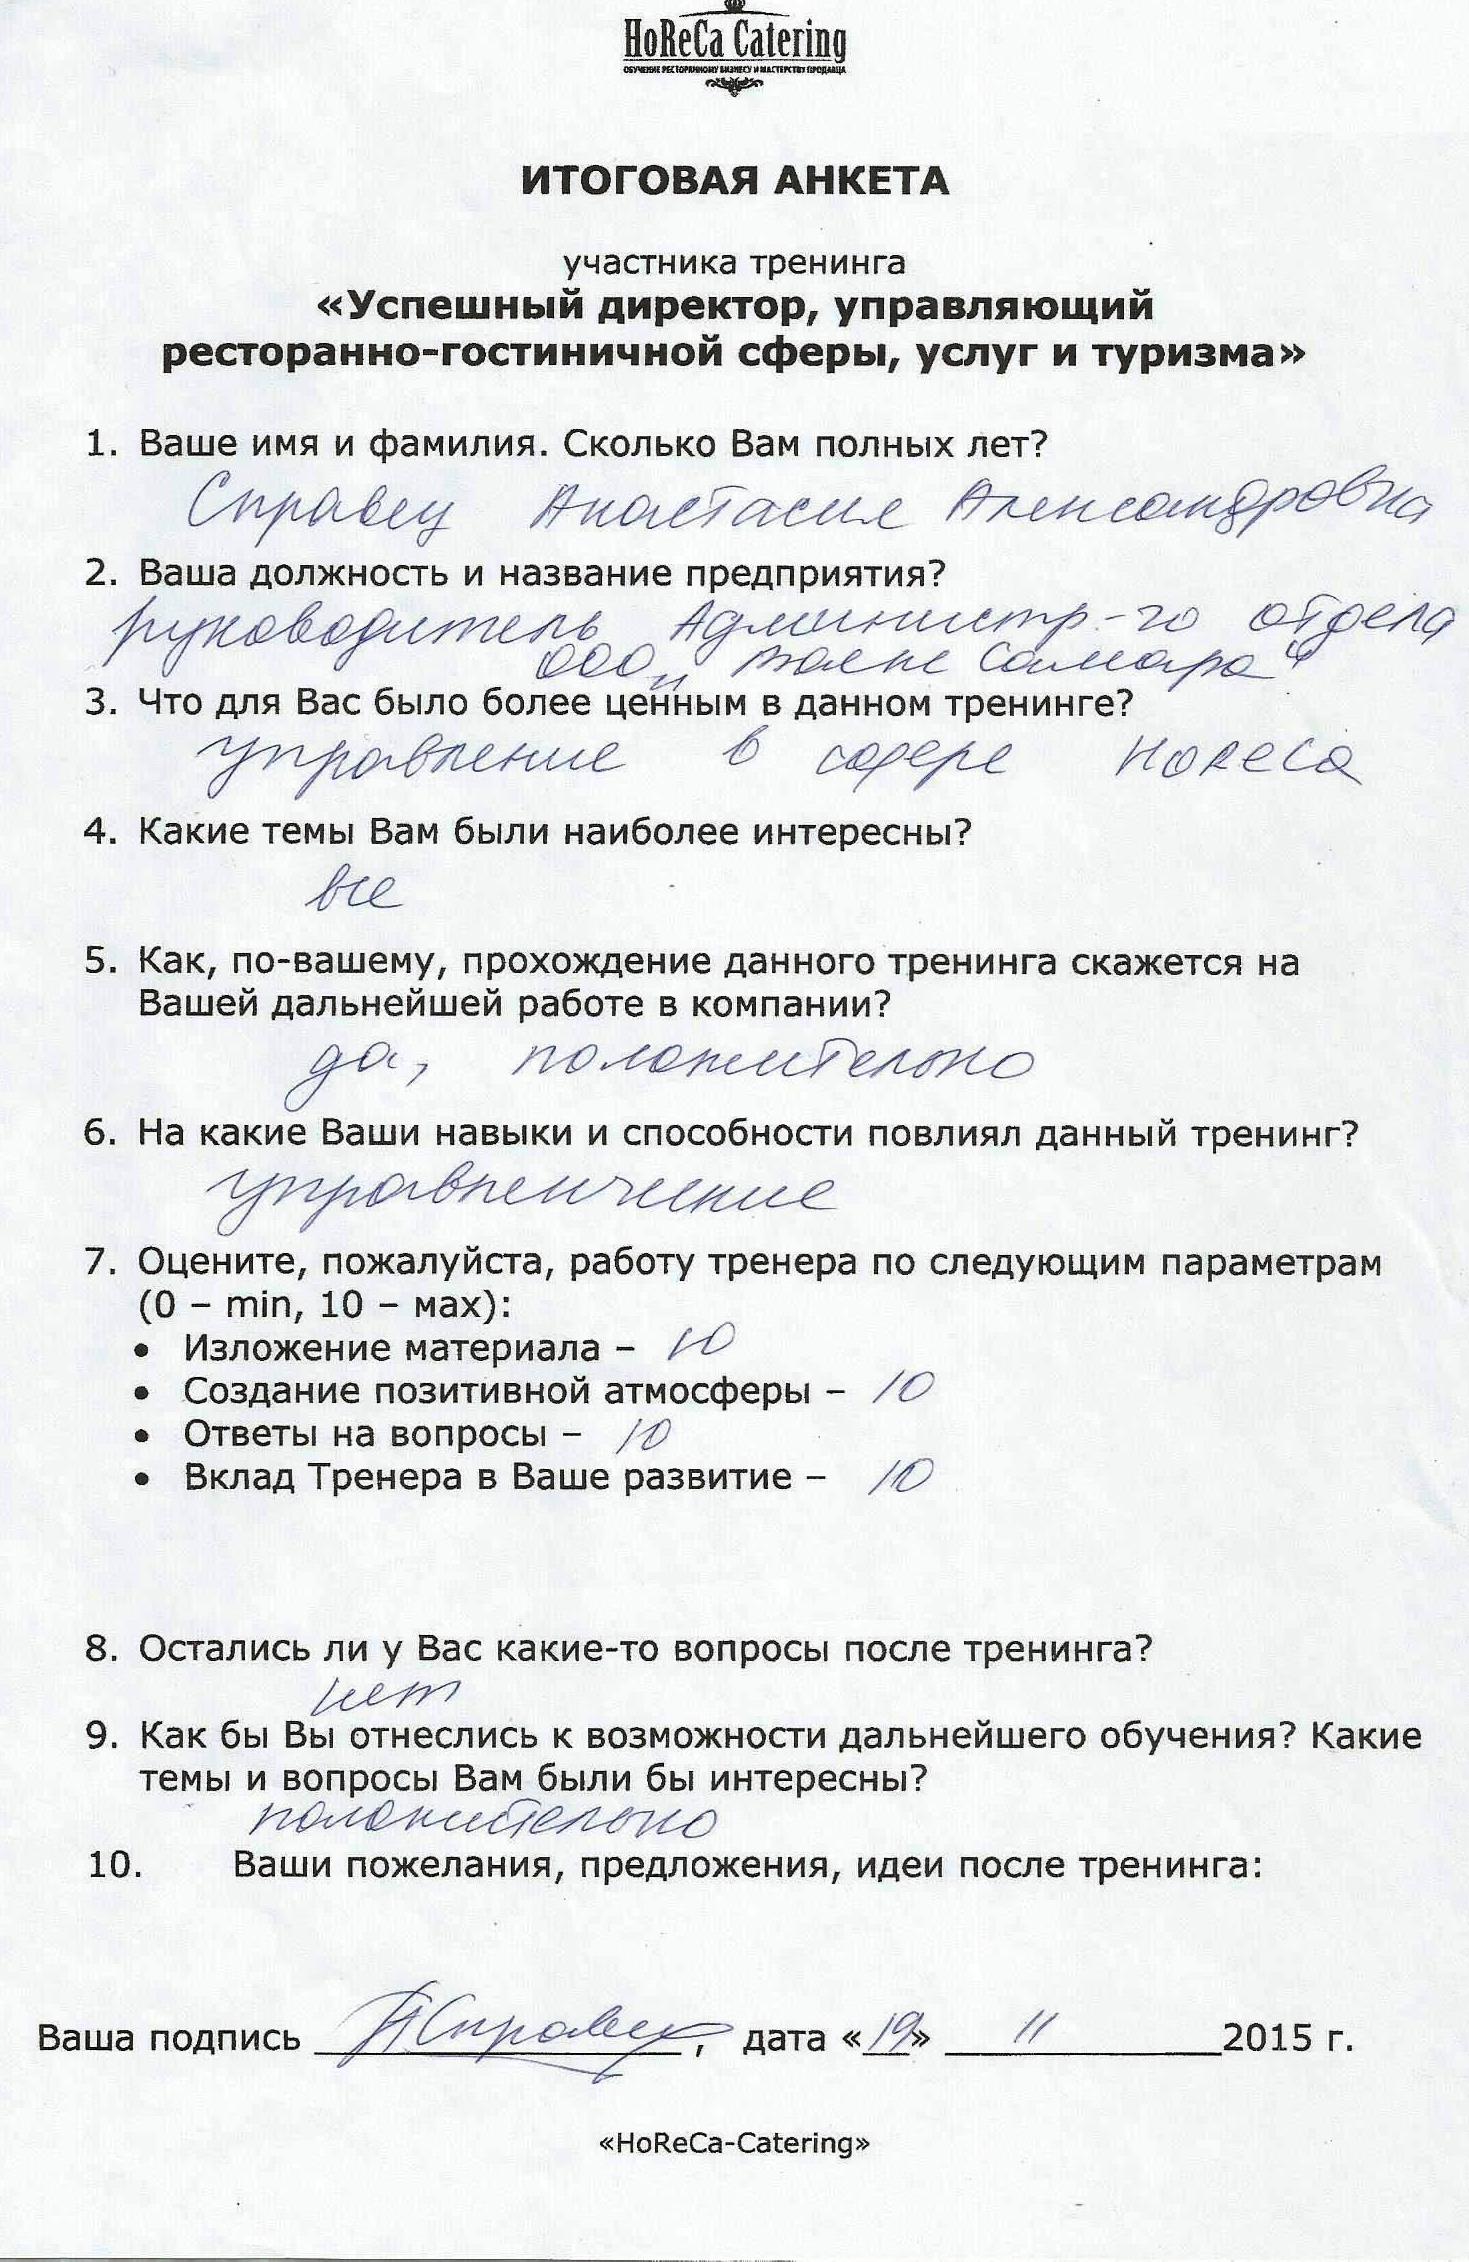 HoReCa Catering
ОБУЧЕНИЕ РЕСТОРАННОМУ БИЗНЕСУ И МАСТЕРСТВУ ПРОДАВЦА
ИТОГОВАЯ АНКЕТА
участника тренинга
«Успешный директор, управляющий
ресторанно-гостиничной сферы, услуг и туризма»
1. Ваше имя и фамилия. Сколько Вам полных лет?
Справец Анастасия Александровна
2. Ваша должность и название предприятия?
руководитель Администр-го отдела
ООО „ Самара“
3. Что для Вас было более ценным в данном тренинге?
управление в сфере HoReCa
4. Какие темы Вам были наиболее интересны?
все
5. Как, по-вашему, прохождение данного тренинга скажется на
Вашей дальнейшей работе в компании?
да, положительно
6. На какие Ваши навыки и способности повлиял данный тренинг?
управленческие
7. Оцените, пожалуйста, работу тренера по следующим параметрам
(0 – min, 10 – мах):
• Изложение материала – 10
• Создание позитивной атмосферы – 10
• Ответы на вопросы – 10
• Вклад Тренера в Ваше развитие – 10
8. Остались ли у Вас какие-то вопросы после тренинга?
нет
9. Как бы Вы отнеслись к возможности дальнейшего обучения? Какие
темы и вопросы Вам были бы интересны?
положительно
10. Ваши пожелания, предложения, идеи после тренинга:
Ваша подпись АСправец, дата «19» 11 2015 г.
«HoReCa-Catering»